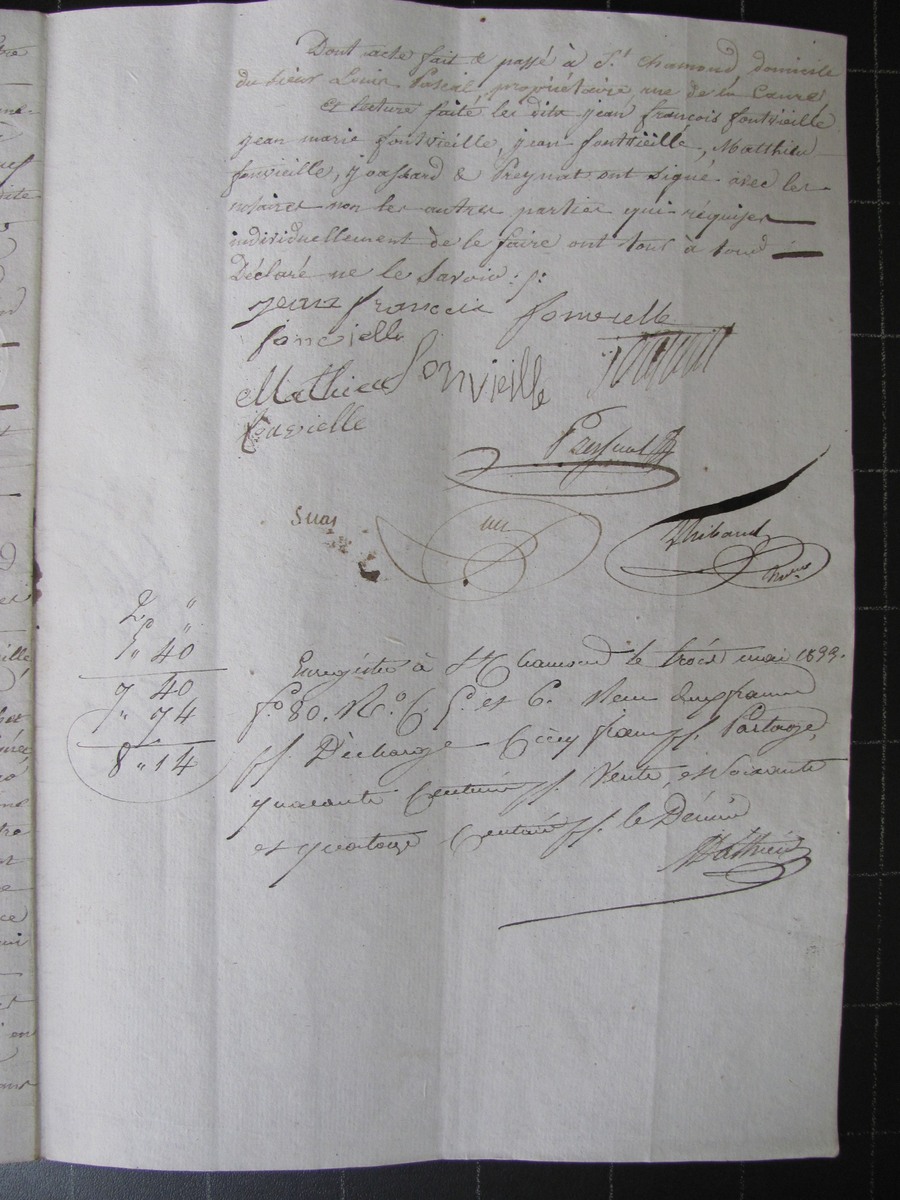 Dont acte fait & passé à St. chamond domicile
du sieur Louis Pascal, propriétaire rue de la
et lecture faite les dits jean françois fontvieille
jean marie fontvieille, jean fontvieille, Matthieu
fonvieille, joassard & Preynat ont signé avec les
notaires non les autres parties qui réquises
individuellement de le faire ont tous à tour
Déclaré ne le Savoir :/:
jean francois fonvielle
fonvielle
Mathieu Fonvieille
fonvielle
Preynat
Thibaud
2 "
5 "
" 40
7 40
" 74
8 " 14
Enregistré à St Chamond le trois mai
fo. 80. Ro. C. 5e. et 6. Reçu deux francs
pr. Décharge Cinq francs pr. Partage,
quarante Centimes pr. Vente, et Soixante
et quatorze Centimes pr. le Décime